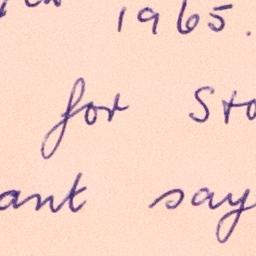 1965.
for Sto
ant say